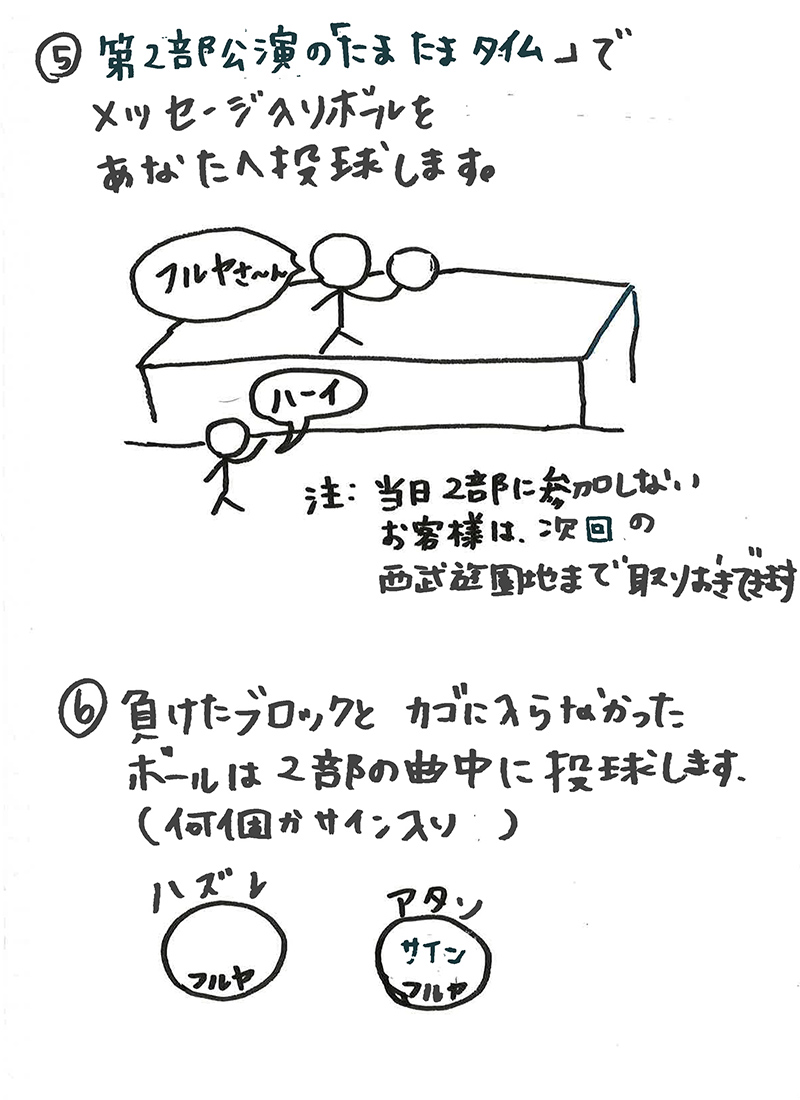 ⑤ 第2部公演の「たまたまタイム」で
メッセージ入りボールを
あなたへ投球します。
フルヤさ〜ん
ハーイ
注: 当日2部に参加しない
お客様は、次回の
西武遊園地まで取りおきできます
⑥ 負けたブロックと カゴに入らなかった
ボールは2部の曲中に投球します.
(何個かサイン入り )
ハズレ
アタリ
フルヤ
サイン
フルヤ